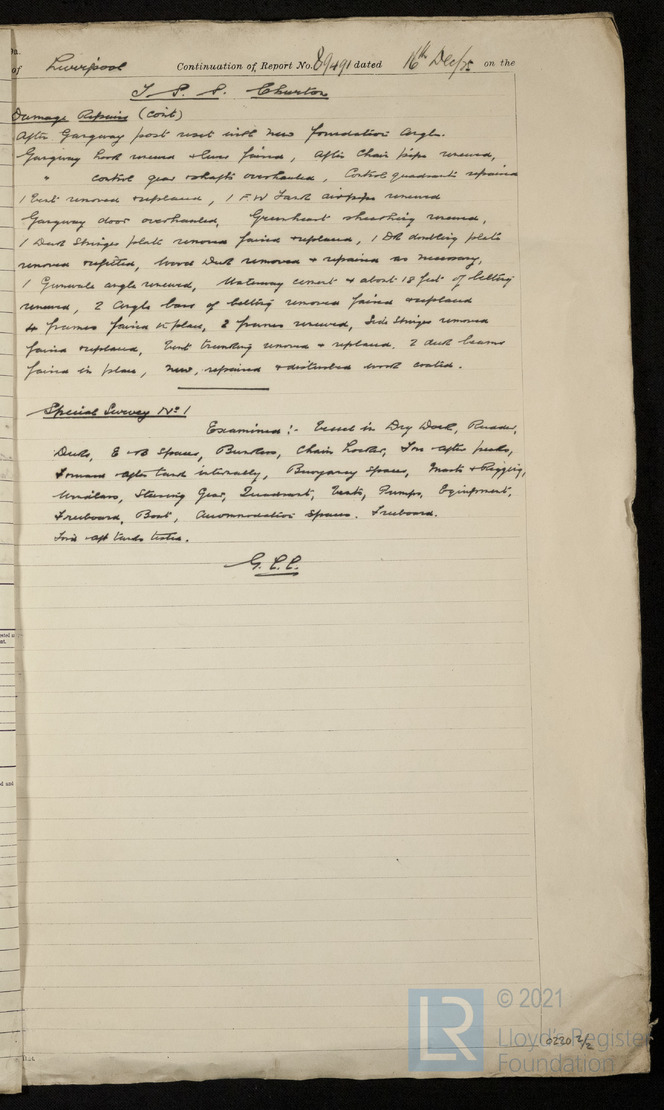 of Liverpool Continuation of Report No. 89491 dated 16th Dec/25 on the
T. S. S. Churton
Damage Repairs (cont)
After Gangway post reset with new foundation angle.
Gangway hook renewed & lever faired, After Chain pipe renewed,
" control gear & shafts overhauled, Control quadrants repaired
1 Vent removed & replaced, 1 F.W Tank airpipe renewed
Gangway door overhauled, Greenheart sheathing renewed,
1 Deck Stringer plate removed faired & replaced, 1 Dk doubling plate
removed & refitted, Wood Deck removed & repaired as necessary,
1 Gunwale angle renewed, Waterway cement & about 18 feet of belting
renewed, 2 Angle bars of belting removed faired & replaced
4 frames faired in place, 2 frames renewed, Side Stringer removed
faired & replaced, Vent trunking removed & replaced. 2 deck beams
faired in place, new, repaired & disturbed work coated.
Special Survey No 1
Examined :- Vessel in Dry Dock, Rudder,
Decks, E & B Spaces, Bunkers, Chain Locker, For & After peaks,
Forward & After tank internally, Buoyancy Spaces, Masts & Rigging,
Windlass, Steering Gear, Quadrant, Vents, Pumps, Equipment,
Freeboard, Boat, Accommodation Spaces. Freeboard.
For & Aft tanks tested.
G. C. C.
© 2021
Lloyd's Register
Foundation
0220 2/2